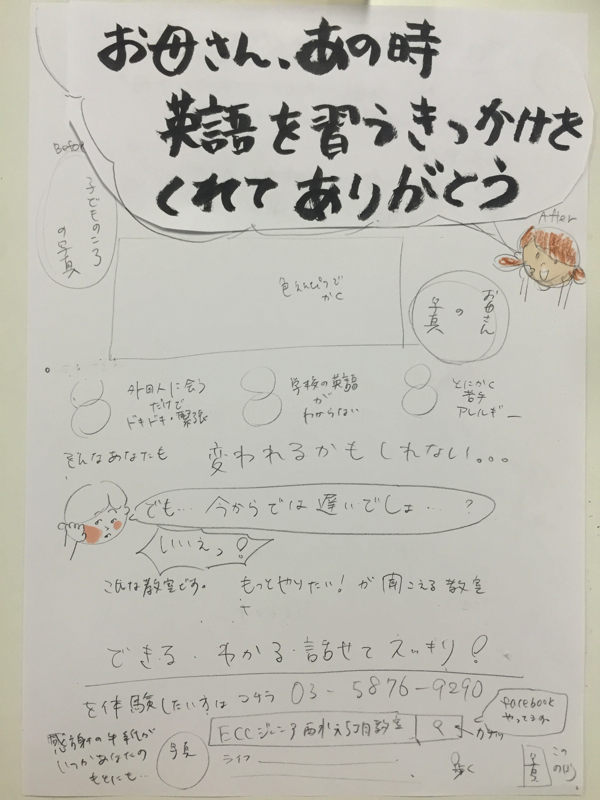 お母さん、あの時
英語を習うきっかけを
くれてありがとう
Before
子どものころ
の写真
After
色えんぴつで
かく
お母さん
の
写真
外国人に会う
だけで
ドキドキ・緊張
学校の英語
が
わからない
とにかく
苦手
アレルギー
そんなあなたも 変われるかもしれない。。。
でも… 今からでは遅いでしょ…?
いいえっ!
こんな教室です。 もっとやりたい!が聞こえる教室
できる・わかる・話せてスッキリ!
を体験したい方はコチラ 03-5876-9290
facebook
やってます
ECCジュニア西水元5丁目教室
感謝の手紙が
いつかあなたの
もとにも…
写真
ライフ
歩く
写真